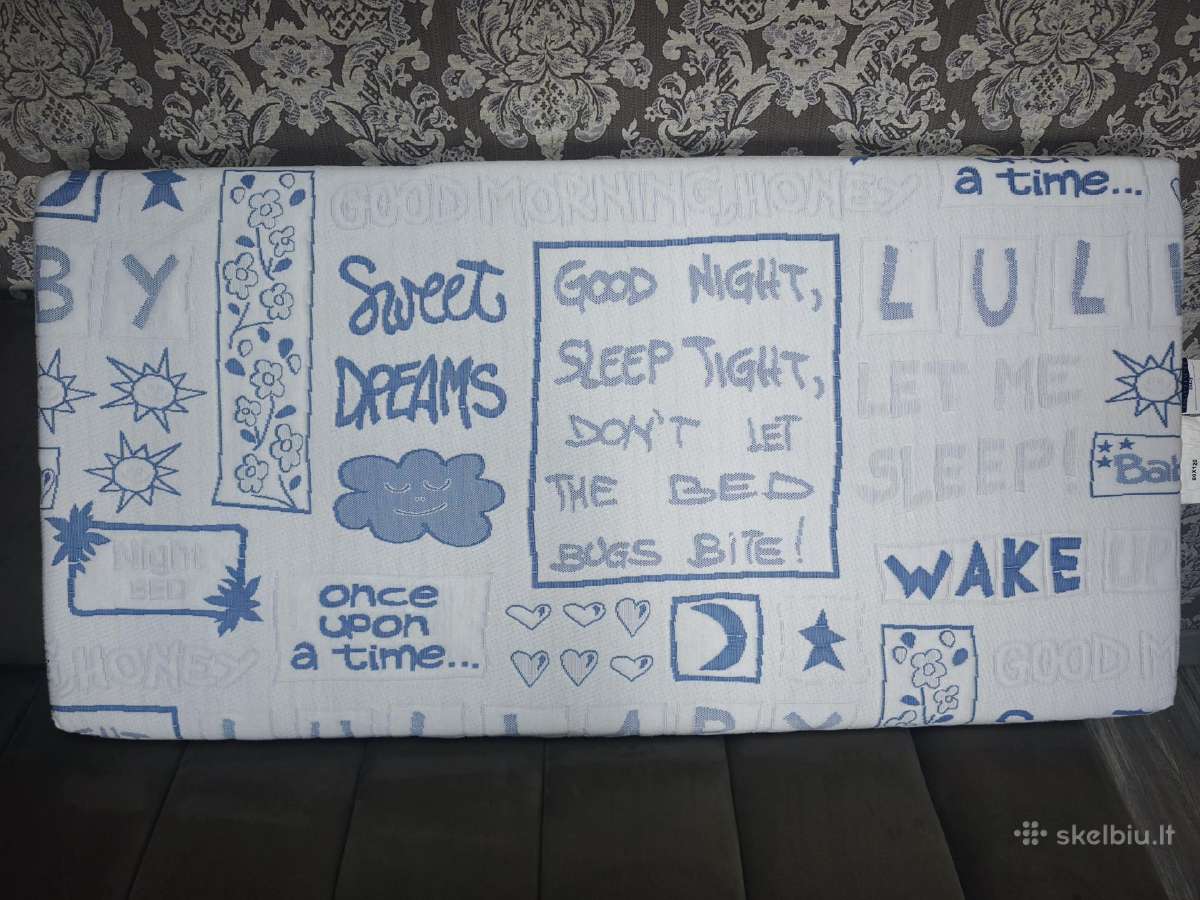 GOOD MORNING, HONEY
a time...
B Y
Sweet
DREAMS
GOOD NIGHT,
SLEEP TIGHT,
DON'T LET
THE BED
BUGS BITE!
L U L
LET ME
SLEEP!
Night
BED
once
upon
a time...
WAKE UP
HONEY
GOOD M
skelbiu.lt